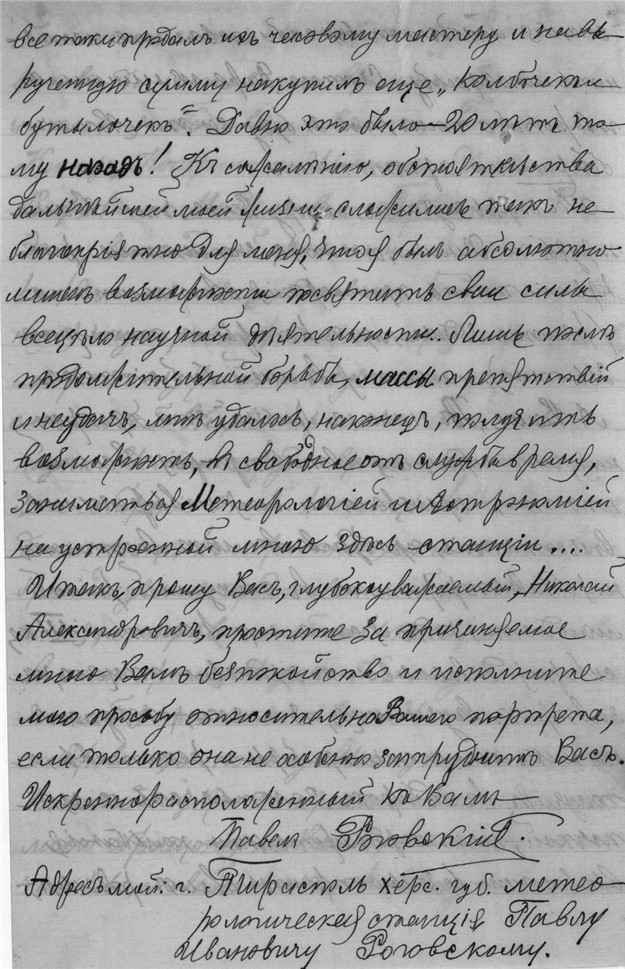 все таки продалъ ихъ часовому мастеру и на вы
рученную сумму накупилъ еще „колбочекъ и
бутылочекъ". Давно это было – 20 лѣтъ то
му назадъ! Къ сожалѣнію, обстоятельства
дальнѣйшей моей жизни сложились такъ не
благопріятно для меня, что я былъ абсолютно
лишенъ возможности посвятить свои силы
всецѣло научной дѣятельности. Лишь послѣ
продолжительной борьбы, массы препятствій
и неудачъ, мнѣ удалось, наконецъ, получить
возможность, въ свободное отъ службы время,
заниматься Метеорологіей и Астрономіей
на устроенной мною здѣсь станціи ....
Итакъ, прошу Васъ, глубокоуважаемый, Николай
Александровичъ, простите за причиняемое
мною Вамъ безпокойство и исполните
мою просьбу относительно Вашего портрета,
если только она не особенно затруднитъ Васъ.
Искренно расположенный къ Вамъ
Павелъ Роговскій.
Адресъ мой: г. Тирасполь херс. губ. метео
рологическая станція Павлу
Ивановичу Роговскому.